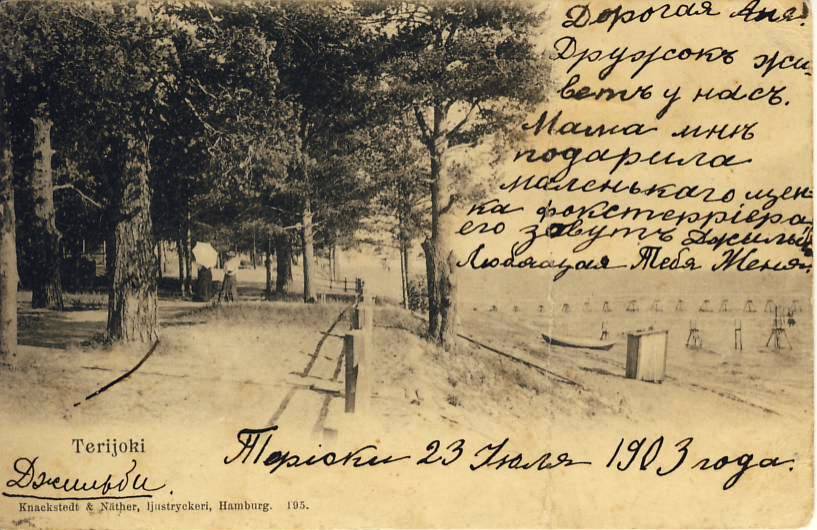 Дорогая Аня!
Дружокъ жи-
ветъ у насъ.
Мама мнѣ
подарила
маленькаго щен-
ка фокстерріера
его зовутъ Джиль
Любящая Тебя Женя.
Terijoki
Теріоки 23 Іюля 1903 года.
Джильби.
Knackstedt & Näther, ljustryckeri, Hamburg. 195.